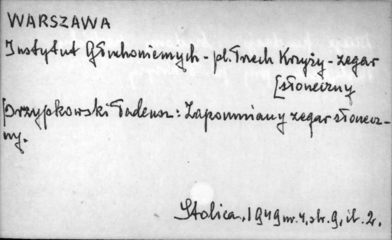 WARSZAWA
Instytut Głuchoniemych - pl. Trzech Krzyży - zegar
[słoneczny
[Przypkowski Tadeusz: Zapomniany zegar słonecz-
ny.
Stolica, 1949 nr. 4, str. 9, il. 2.